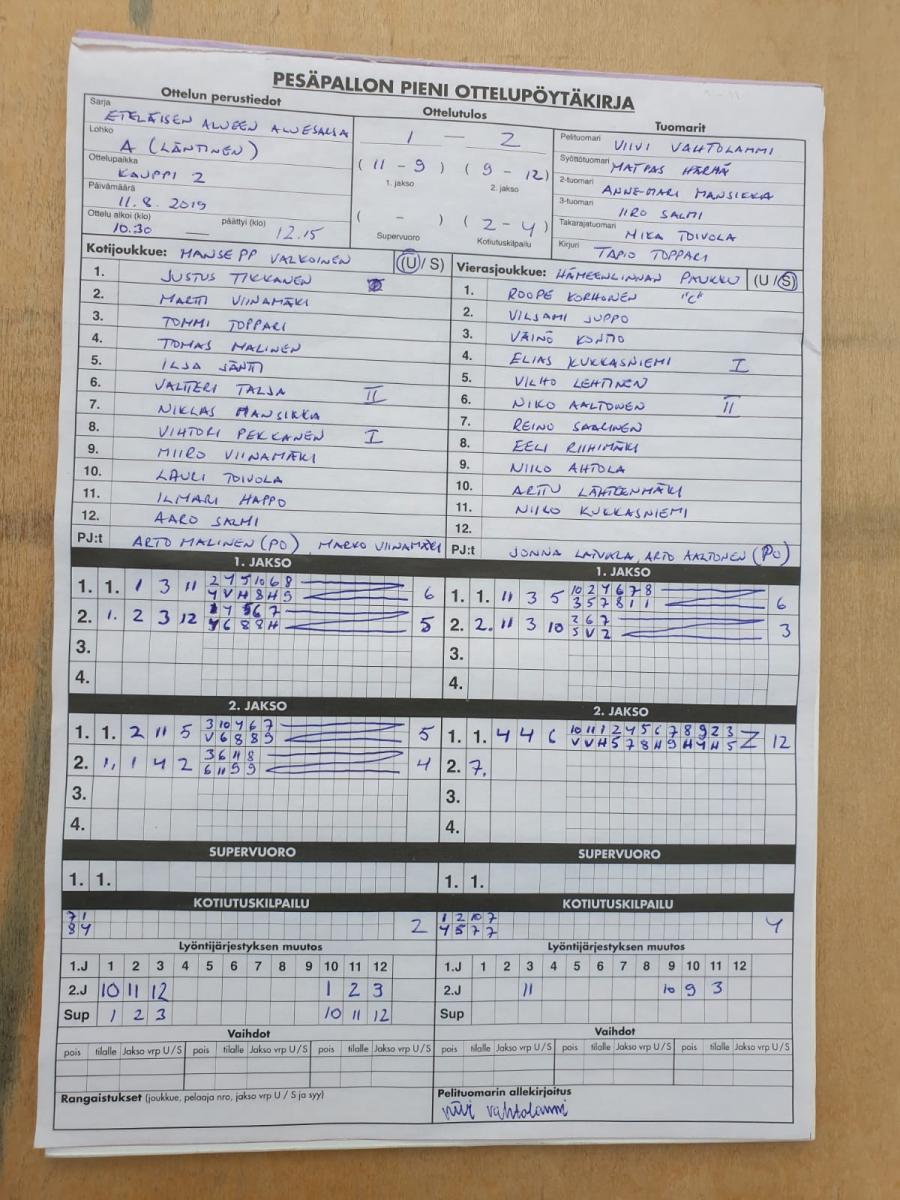 PESÄPALLON PIENI OTTELUPÖYTÄKIRJA
Ottelun perustiedot Ottelutulos Tuomarit
Sarja ETELÄISEN ALUEEN ALUESARJA
Lohko A (LÄNTINEN)
Ottelupaikka KAUPPI 2
Päivämäärä 11.8.2019
Ottelu alkoi (klo) 10.30 päättyi (klo) 12.15
1 — 2
(11 - 9) (9 - 12)
1. jakso 2. jakso
( - ) (2 - 4)
Supervuoro Kotiutuskilpailu
Pelituomari VIIVI VAHTOLAMMI
Syöttötuomari HÄRMÄ
2-tuomari ANNE-MARI MANSIKKA
3-tuomari IIRO SALMI
Takarajatuomari MIKA TOIVOLA
Kirjuri TAPIO TOPPARI
Kotijoukkue: MANSE PP VALKOINEN (U/S)
1. JUSTUS TIKKANEN
2. MARTTI VIINAMÄKI
3. TOMMI TOPPARI
4. TOMAS MALINEN
5. ILJA JÄNTTI
6. VALTTERI TALJA II
7. NIKLAS MANSIKKA
8. VIHTORI PEKKANEN I
9. MIIRO VIINAMÄKI
10. LAURI TOIVOLA
11. ILMARI HAPPO
12. AARO SALMI
PJ:t ARTO MALINEN (PO), MARKO VIINAMÄKI
Vierasjoukkue: HÄMEENLINNAN PAUKKU (U/S)
1. ROOPE KORHONEN "C"
2. VILJAMI JUPPO
3. VÄINÖ KONTIO
4. ELIAS KUKKASNIEMI I
5. VILHO LEHTINEN
6. NIKO AALTONEN II
7. REINO SAARINEN
8. EELI RIIHIMÄKI
9. NIILO AHTOLA
10. ARTTU LÄHTEENMÄKI
11. NIILO KUKKASNIEMI
12.
PJ:t JONNA LATVALA, ARTO AALTONEN (PO)
1. JAKSO
1. 1. 1 3 11 2 4 5 10 6 8
4 V H 8 H 9 6
2. 1. 2 3 12 4 5 6 7
6 8 8 H 5
3.
4.
1. JAKSO
1. 1. 11 3 5 10 2 4 6 7 8
3 5 7 8 1 1 6
2. 2. 11 3 10 2 6 7
5 V 2 3
3.
4.
2. JAKSO
1. 1. 2 11 5 3 10 4 6 7
V 6 8 8 9 5
2. 1. 1 4 2 3 6 11 8
6 11 9 9 4
3.
4.
2. JAKSO
1. 1. 4 4 6 10 11 1 2 4 5 6 7 8 9 2 3
V V H 5 7 8 H 9 H 4 H 5 12
2. 7.
3.
4.
SUPERVUORO
1. 1.
SUPERVUORO
1. 1.
KOTIUTUSKILPAILU
7 1
8 4 2
KOTIUTUSKILPAILU
1 2 10 7
4 5 7 7 4
Lyöntijärjestyksen muutos
1.J 1 2 3 4 5 6 7 8 9 10 11 12
2.J 10 11 12 1 2 3
Sup 1 2 3 10 11 12
Lyöntijärjestyksen muutos
1.J 1 2 3 4 5 6 7 8 9 10 11 12
2.J 11 10 9 3
Sup
Vaihdot
pois tilalle Jakso vrp U/S pois tilalle Jakso vrp U/S pois tilalle Jakso vrp U/S
Vaihdot
pois tilalle Jakso vrp U/S pois tilalle Jakso vrp U/S pois tilalle Jakso vrp U/S
Rangaistukset (joukkue, pelaaja nro, jakso vrp U / S ja syy)
Pelituomarin allekirjoitus
viivi vahtolammi